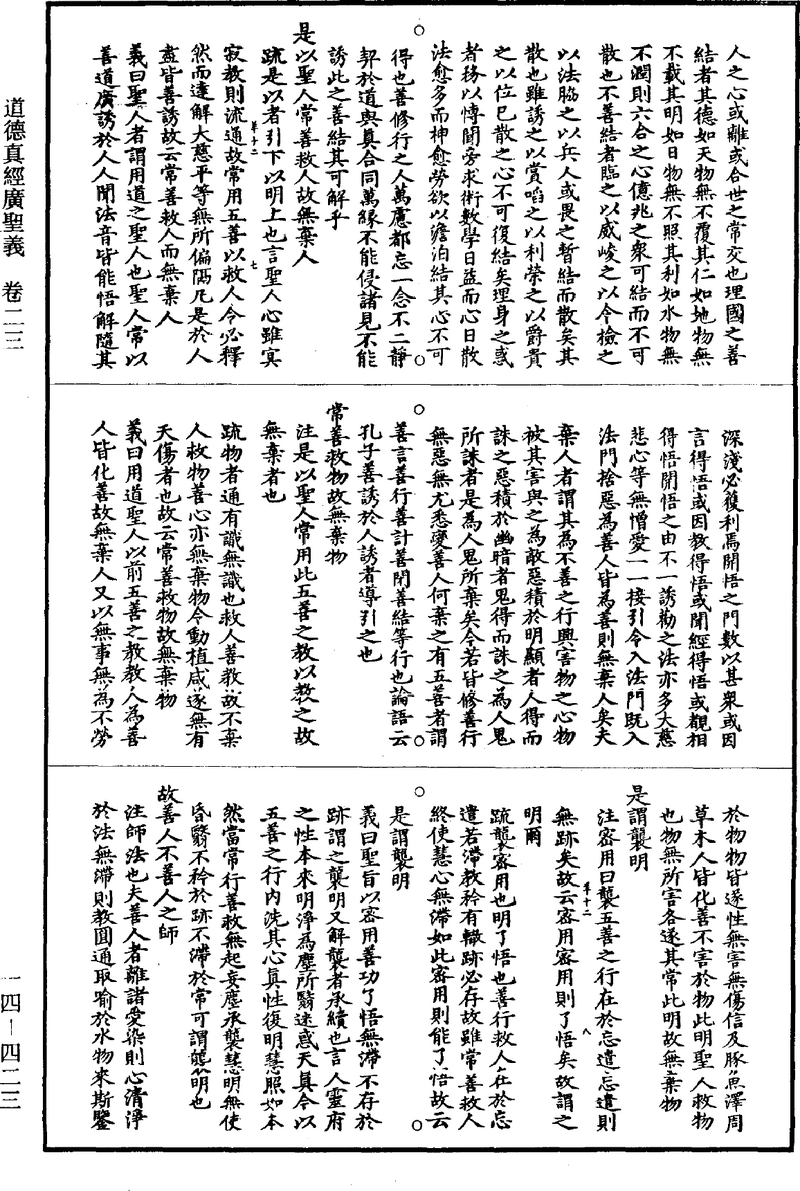 人之心或離或合世之常交也理國之善
結者其德如天物無不覆其仁如地物無
不載其明如日物無不照其利如水物無
不潤則六合之心億兆之衆可結而不可
散也不善結者臨之以威峻之以令檢之
以法脇之以兵人或畏之暫結而散矣其
散也雖誘之以賞啗之以利榮之以爵貴
之以位已散之心不可復結矣理身之惑
者務以愽聞旁求術數學日益而心日散
法愈多而神愈勞欲以澹泊結其心不可
得也善修行之人萬慮都忘一念不二靜
契於道與真合同萬緣不能侵諸見不能
誘此之善結其可解乎
是以聖人常善救人故無棄人
疏是以者引下以明上也言聖人心雖㝠
寂教則流通故常用五善以救人令必釋
然而達解大慈平等無所偏隔凡是於人
盡皆善誘故云常善救人而無棄人
義曰聖人者謂用道之聖人也聖人常以
善道廣誘於人人聞法音皆能悟解隨其
深淺必獲利焉開悟之門數以甚衆或因
言得悟或因教得悟或聞經得悟或覩相
得悟開悟之由不一誘勸之法亦多大慈
悲心等無憎愛一一接引令入法門既入
法門捨惡為善人皆為善則無棄人矣夫
棄人者謂其為不善之行興害物之心物
被其害與之為敵惡積於明顯者人得而
誅之惡積於幽暗者鬼得而誅之為人鬼
所誅者是為人鬼所棄矣今若皆修善行
無惡無尤悉變善人何棄之有五善者謂
善言善行善計善閉善結等行也論語云
孔子善誘於人誘者導引之也
常善救物故無棄物
注是以聖人常用此五善之教以教之故
無棄者也
疏物者通有識無識也救人善教故不棄
人救物善心亦無棄物令動植咸遂無有
夭傷者也故云常善救物故無棄物
義曰用道聖人以前五善之教教人為善
人皆化善故無棄人又以無事無為不勞
於物物皆遂性無害無傷信及豚魚澤周
草木人皆化善不害於物此明聖人救物
也物無所害各遂其常此明故無棄物
是謂襲明
注密用曰襲五善之行在於忘遣忘遣則
無跡矣故云密用密用則了悟矣故謂之
明爾
疏襲密用也明了悟也善行救人在於忘
遣若滯教矜有轍跡必存故雖常善救人
終使慧心無滯如此密用則能了悟故云
是謂襲明
義曰聖旨以密用善功了悟無滯不存於
跡謂之襲明又解襲者承續也言人靈府
之性本來明淨為塵所翳迷惑天真今以
五善之行內洗其心真性復明慧照如本
然當常行善救無起妄塵承襲慧明無使
昏翳不矜於跡不滯於常可謂襲明也
故善人不善人之師
注師法也夫善人者離諸愛染則心清淨
於法無滯則教圓通取喻於水物來斯鑒
道德真經廣聖義 卷二三
一四－四二三